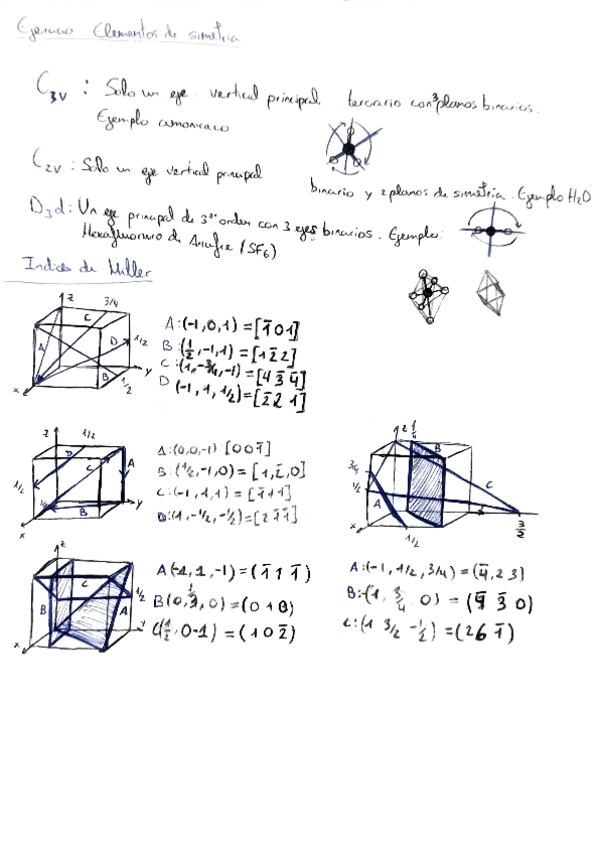 Ejercicio Elementos de simetria
C3v : Solo un eje vertical principal terciario con 3 planos binarios.
Ejemplo amoniaco
C2v : Solo un eje vertical principal
binario y 2 planos de simetria. Ejemplo H2O
D3d: Un eje principal de 3er orden con 3 ejes binarios. Ejemplo:
Hexafluoruro de Azufre (SF6)
Indices de Miller
z 3/4 C A D 1/2 y B 1/2 x
A:(-1,0,1)=[1̄01]
B:(1/2,-1,1)=[12̄2]
C:(1,-3/4,-1)=[43̄4̄]
D (-1,1,1/2)=[2̄21]
z 1/2 D C A 1/2 B y x
A:(0,0,-1) [001̄]
B:(1/2,-1,0)=[1,2̄,0]
C:(-1,1,1)=[1̄11]
D:(1,-1/2,-1/2)=[21̄1̄]
z 1/4 B 3/4 1/2 C A 1/2 3/2 x
z C 1/2 B A y x
A(-1,1,-1)=(1̄11̄)
B(0, ,0)=(010)
C(1/2,0-1)=(102̄)
A:(-1,1/2,3/4)=(4̄,23)
B:(1̄, 3/4, 0)=( 3̄0)
C:(1 3/2 -1/2)=(261̄)